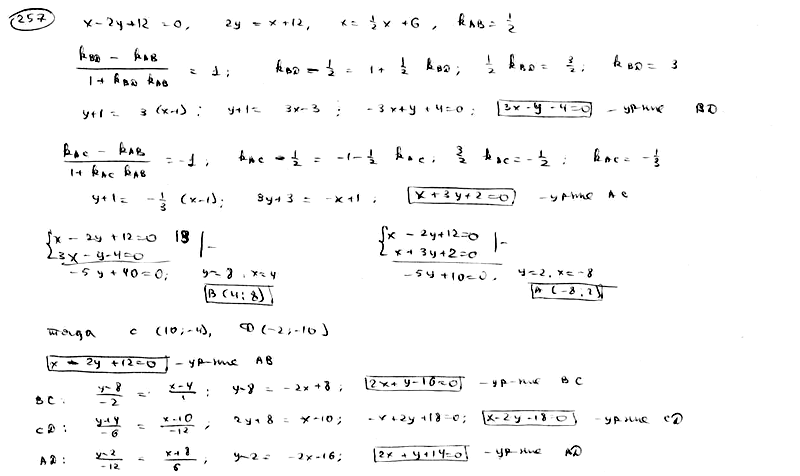 257 x-2y+12=0, 2y = x+12, x = 1/2 x+6, k_AB = 1/2
(k_BD - k_AB)/(1+k_BD k_AB) = 1; k_BD - 1/2 = 1+ 1/2 k_BD; 1/2 k_BD = 3/2; k_BD = 3
y+1 = 3(x-1); y+1 = 3x-3; -3x+y+4=0; 3x-y-4=0 - ур-ние BD
(k_AC - k_AB)/(1+k_AC k_AB) = -1; k_AC - 1/2 = -1-1/2 k_AC; 3/2 k_AC = -1/2; k_AC = -1/3
y+1 = -1/3 (x-1); 3y+3 = -x+1; x+3y+2=0 - ур-ние AC
{x - 2y+12=0 |3 |- {x - 2y+12=0 |-
3x - y-4=0 x+3y+2=0
-5y+40=0; y=8, x=4 -5y+10=0, y=2, x=-8
B(4;8) A(-8;2)
тогда C(10;-4), D(-2;-10)
x - 2y+12=0 - ур-ние AB
BC: (y-8)/-2 = (x-4)/1; y-8 = -2x+8; 2x+y-16=0 - ур-ние BC
CD: (y+4)/-6 = (x-10)/-12; 2y+8 = x-10; -x+2y+18=0; x-2y-18=0 - ур-ние CD
AD: (y-2)/-12 = (x+8)/6; y-2 = -2x-16; 2x+y+14=0 - ур-ние AD